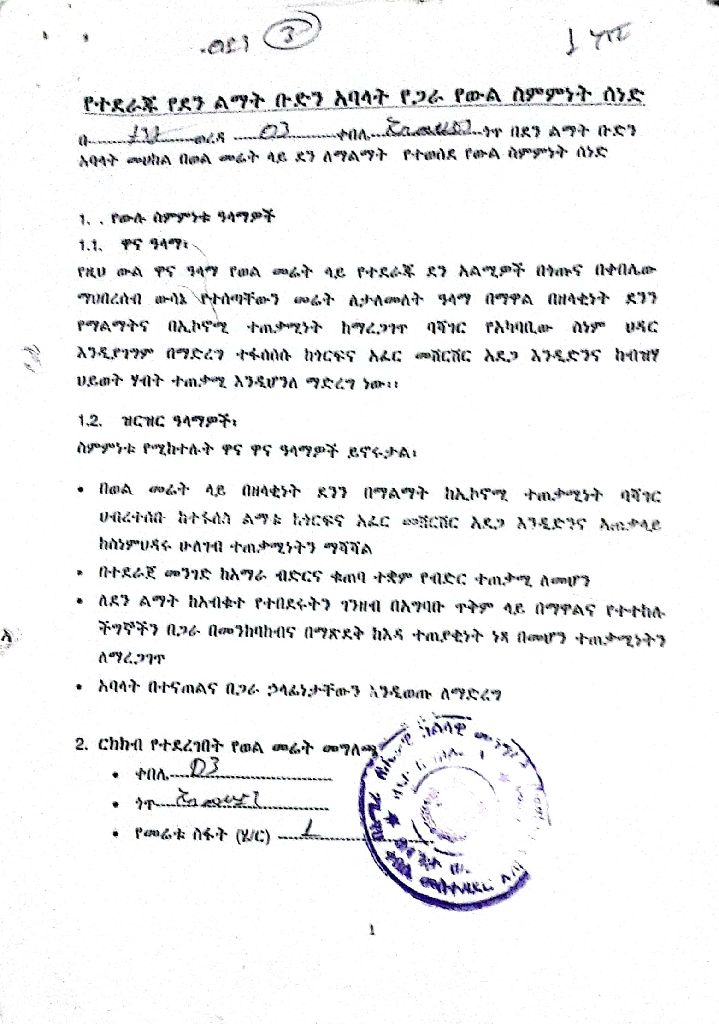 3
የተደራጁ የደን ልማት ቡድን አባላት የጋራ የውል ስምምነት ሰነድ
በ............ወረዳ ............03............ቀበሌ............ጎጥ በደን ልማት ቡድን
አባላት መሀከል በወል መሬት ላይ ደን ለማልማት የተወሰደ የውል ስምምነት ሰነድ
1. . የውሉ ስምምነቱ ዓላማዎች
1.1. ዋና ዓላማ፤
የዚህ ውል ዋና ዓላማ የወል መሬት ላይ የተደራጁ ደን አልሚዎች በጎጡና በቀበሌው
ማህበረሰብ ውሳኔ የተሰጣቸውን መሬት ለታለመለት ዓላማ በማዋል በዘላቂነት ደንን
የማልማትና በኢኮኖሚ ተጠቃሚነት ከማረጋገጥ ባሻገር የአካባቢው ስነም ህዳር
እንዲያገግም በማድረግ ተፋሰሰሱ ከጎርፍና አፈር መሸርሸር አደጋ እንዲድንና ከብዝሃ
ህይወት ሃብት ተጠቃሚ እንዲሆንለ ማድረግ ነው፡፡
1.2. ዝርዝር ዓላማዎች፤
ስምምነቱ የሚከተሉት ዋና ዋና ዓላማዎች ይኖሩታል፤
• በወል መሬት ላይ በዘላቂነት ደንን በማልማት ከኢኮኖሚ ተጠቃሚነት ባሻገር
ህብረተሰቡ ከተፋሰስ ልማቱ ከጎርፍና አፈር መሸርሸር አደጋ እንዲድንና አጠቃላይ
ከስነምህዳሩ ሁለገብ ተጠቃሚነትን ማሻሻል
• በተደራጀ መንገድ ከአማራ ብድርና ቁጠባ ተቋም የብድር ተጠቃሚ ለመሆን
• ለደን ልማት ከአብቁተ የተበደሩትን ገንዘብ በአግባቡ ጥቅም ላይ በማዋልና የተተከሉ
ችግኞችን በጋራ በመንከባከብና በማጽደቅ ከእዳ ተጠያቂነት ነጻ በመሆን ተጠቃሚነትን
ለማረጋገጥ
• አባላት በተናጠልና በጋራ ኃላፊነታቸውን እንዲወጡ ለማድረግ
2. ርክክብ የተደረገበት የወል መሬት መግለጫ
• ቀበሌ 03
• ጎጥ
• የመሬቱ ስፋት (ሄ/ር) 1
1